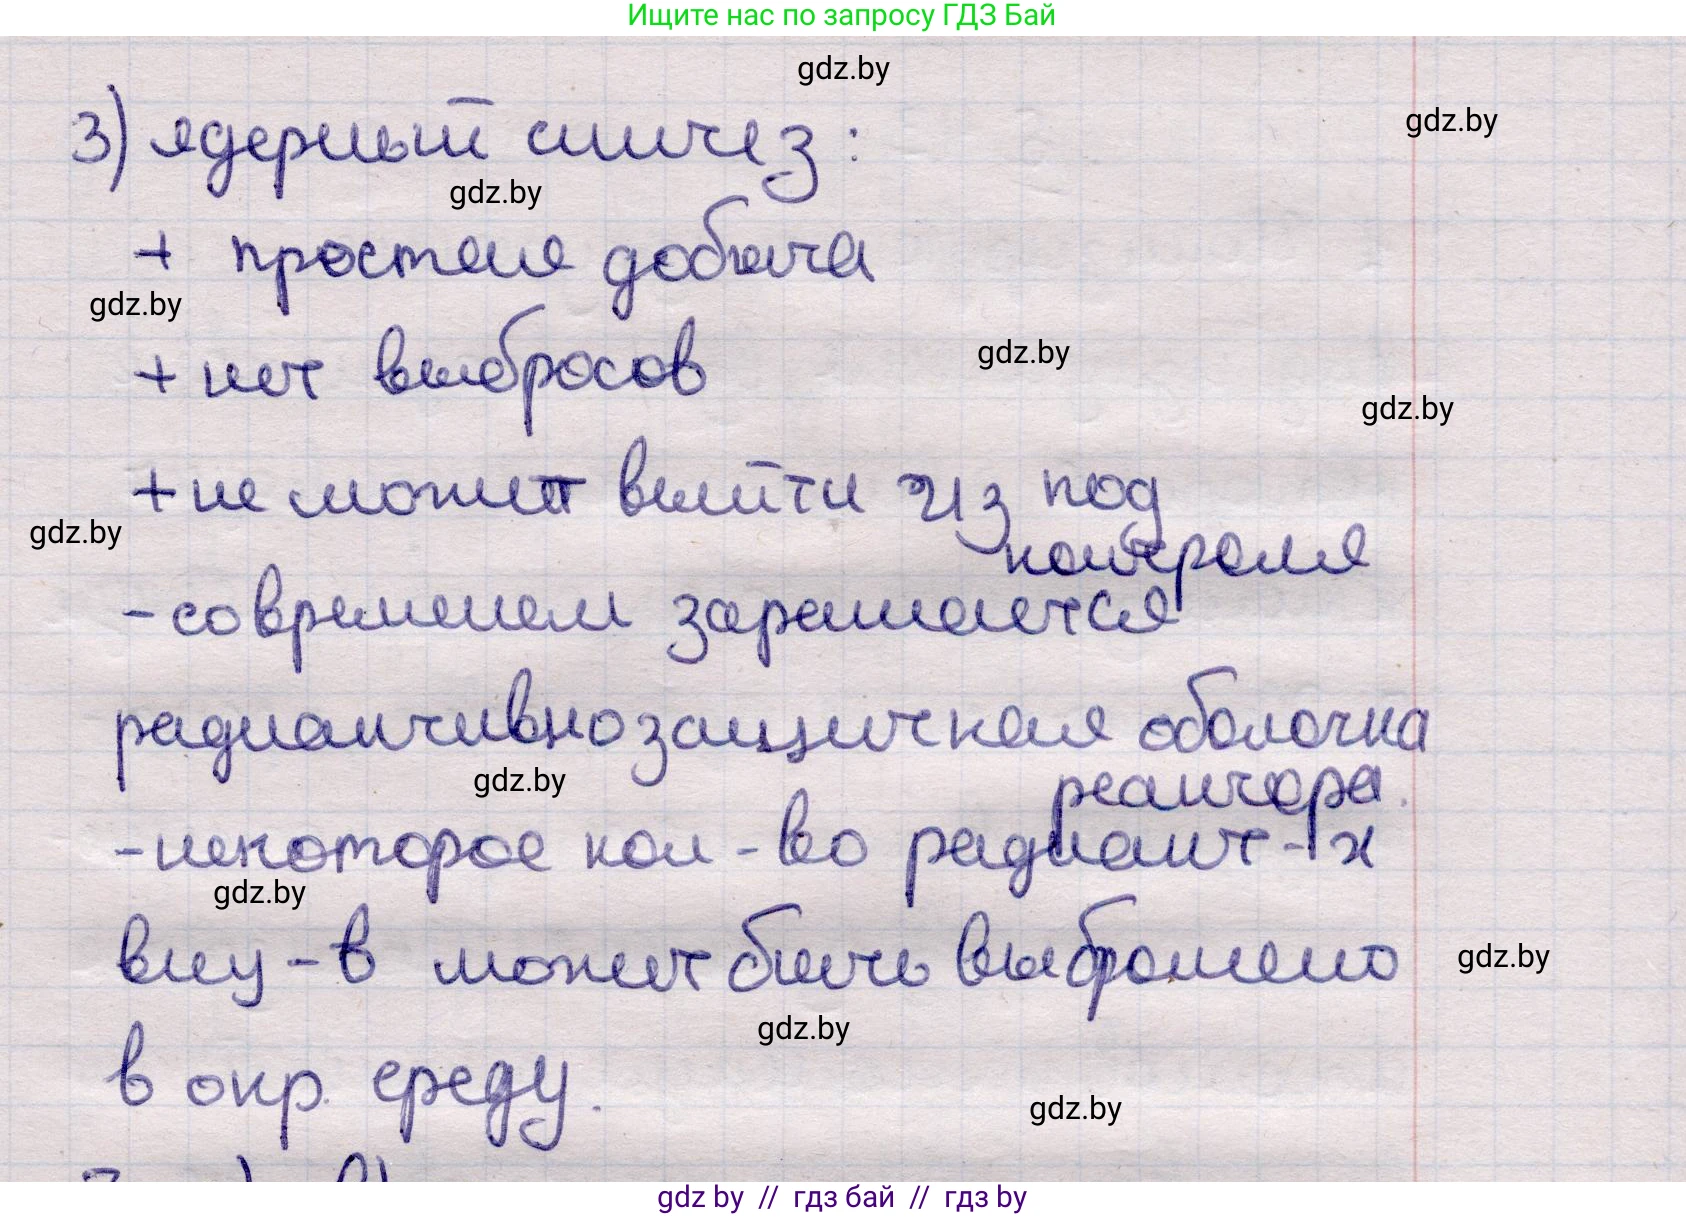 Ищите нас по запросу ГДЗ Бай
gdz.by
gdz.by
3) ядерный синтез:
gdz.by
+ простая добыча
gdz.by
+ нет выбросов
gdz.by
gdz.by
+ не может выйти из под
контроля
gdz.by
- современем заражается
радиактивнозащитная оболочка
реактора.
gdz.by
- некоторое кол-во радиакт-х
gdz.by
вещ-в может быть выброшено
gdz.by
gdz.by
в окр. среду.
gdz.by
gdz by // гдз бай // гдз by